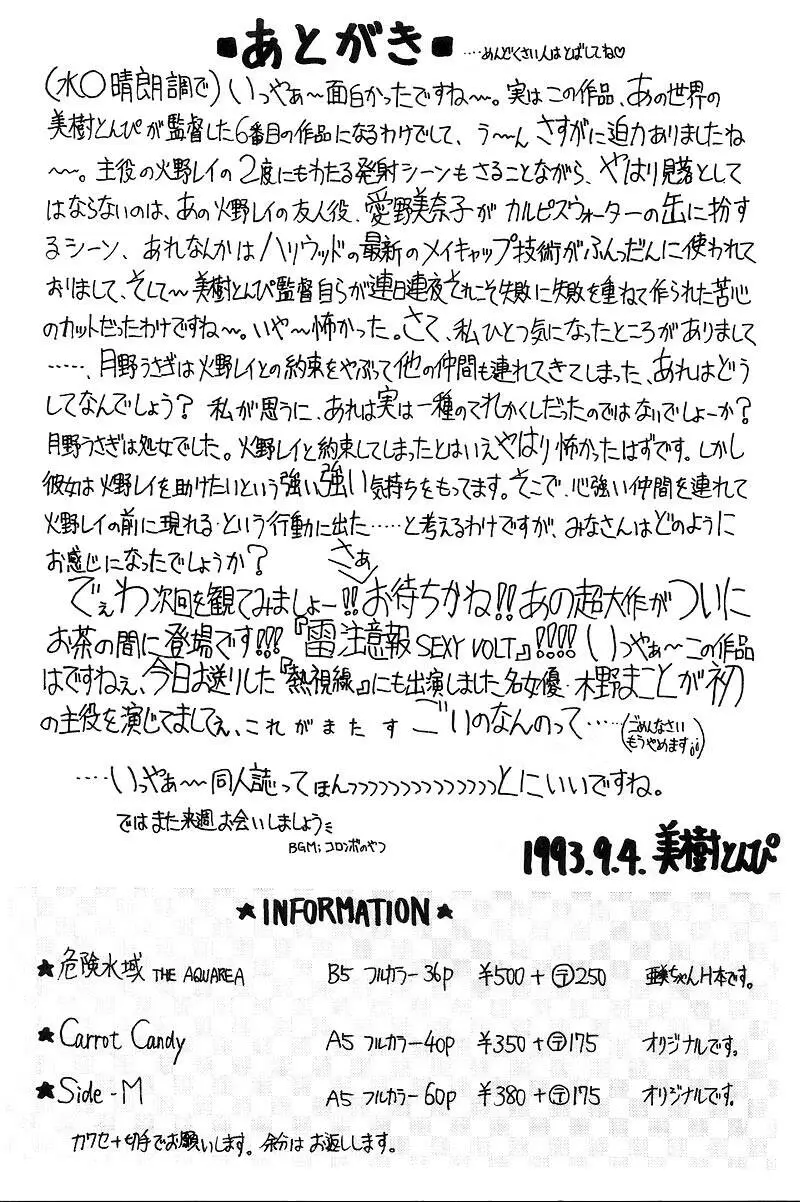 ■あとがき■ ‥‥めんどくさい人はとばしてね♡
(水○晴朗調で)いっやぁ〜面白かったですね〜。実はこの作品、あの世界の
美樹とんぴが監督した6番目の作品になるわけでして、う〜ん さすがに迫力ありましたね
〜。主役の火野レイの2度にもわたる発射シーンもさることながら、やはり見落として
はならないのは、あの火野レイの友人役、愛野美奈子がカルピスウォーターの缶に扮す
るシーン、あれなんかはハリウッドの最新のメイキャップ技術がふんだんに使われて
おりまして、そして〜美樹とんぴ監督自らが連日連夜それこそ失敗に失敗を重ねて作られた苦心
のカットだったわけですね〜。いや〜怖かった。さて、私ひとつ気になったところがありまして
‥‥‥、月野うさぎは火野レイとの約束をやぶって他の仲間も連れてきてしまった、あれはどう
してなんでしょう? 私が思うに、あれは実は一種のてれかくしだったのではないでしょーか?
月野うさぎは処女でした。火野レイと約束してしまったとはいえやはり怖かったはずです。しかし
彼女は火野レイを助けたいという強い強い気持ちをもってます。そこで、心強い仲間を連れて
火野レイの前に現れる‥という行動に出た‥‥‥と考えるわけですが、みなさんはどのように
お感じになったでしょうか?
さぁ
でぇわ次回を観てみましょー!!お待ちかね!!あの超大作がついに
お茶の間に登場です!!!『雷注意報 SEXY VOLT』!!!!いっやぁ〜この作品
はですねぇ、今日お送りした『熱視線』にも出演しました名女優・木野まことが初
の主役を演じてましてぇ、これがまたすごいのなんのって‥‥‥(ごめんなさい
もうやめます;;)
‥‥いっやぁ〜同人誌ってほんっっっっっっっっっっっっっっとにいいですね。
ではまた来週お会いしましょう
BGM;コロンボのやつ
1993.9.4. 美樹とんぴ
★INFORMATION★
★危険水域 THE AQUAREA B5 フルカラー36p ¥500+〒250 亜美ちゃんH本です。
★Carrot Candy A5 フルカラー40p ¥350+〒175 オリジナルです。
★Side-M A5 フルカラー60p ¥380+〒175 オリジナルです。
カワセ+切手でお願いします。余分はお返しします。